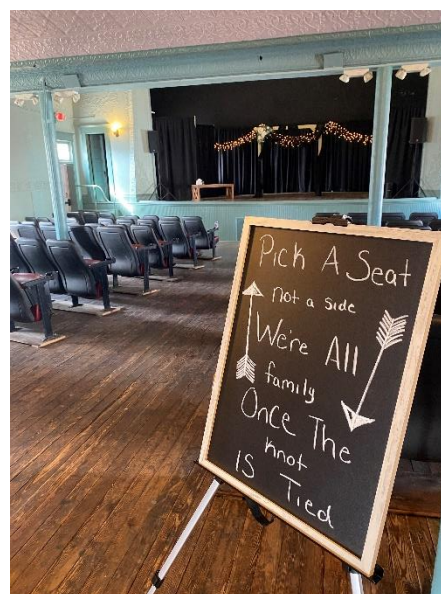 Pick A Seat
not a side
We're All
family
Once The
knot
IS Tied